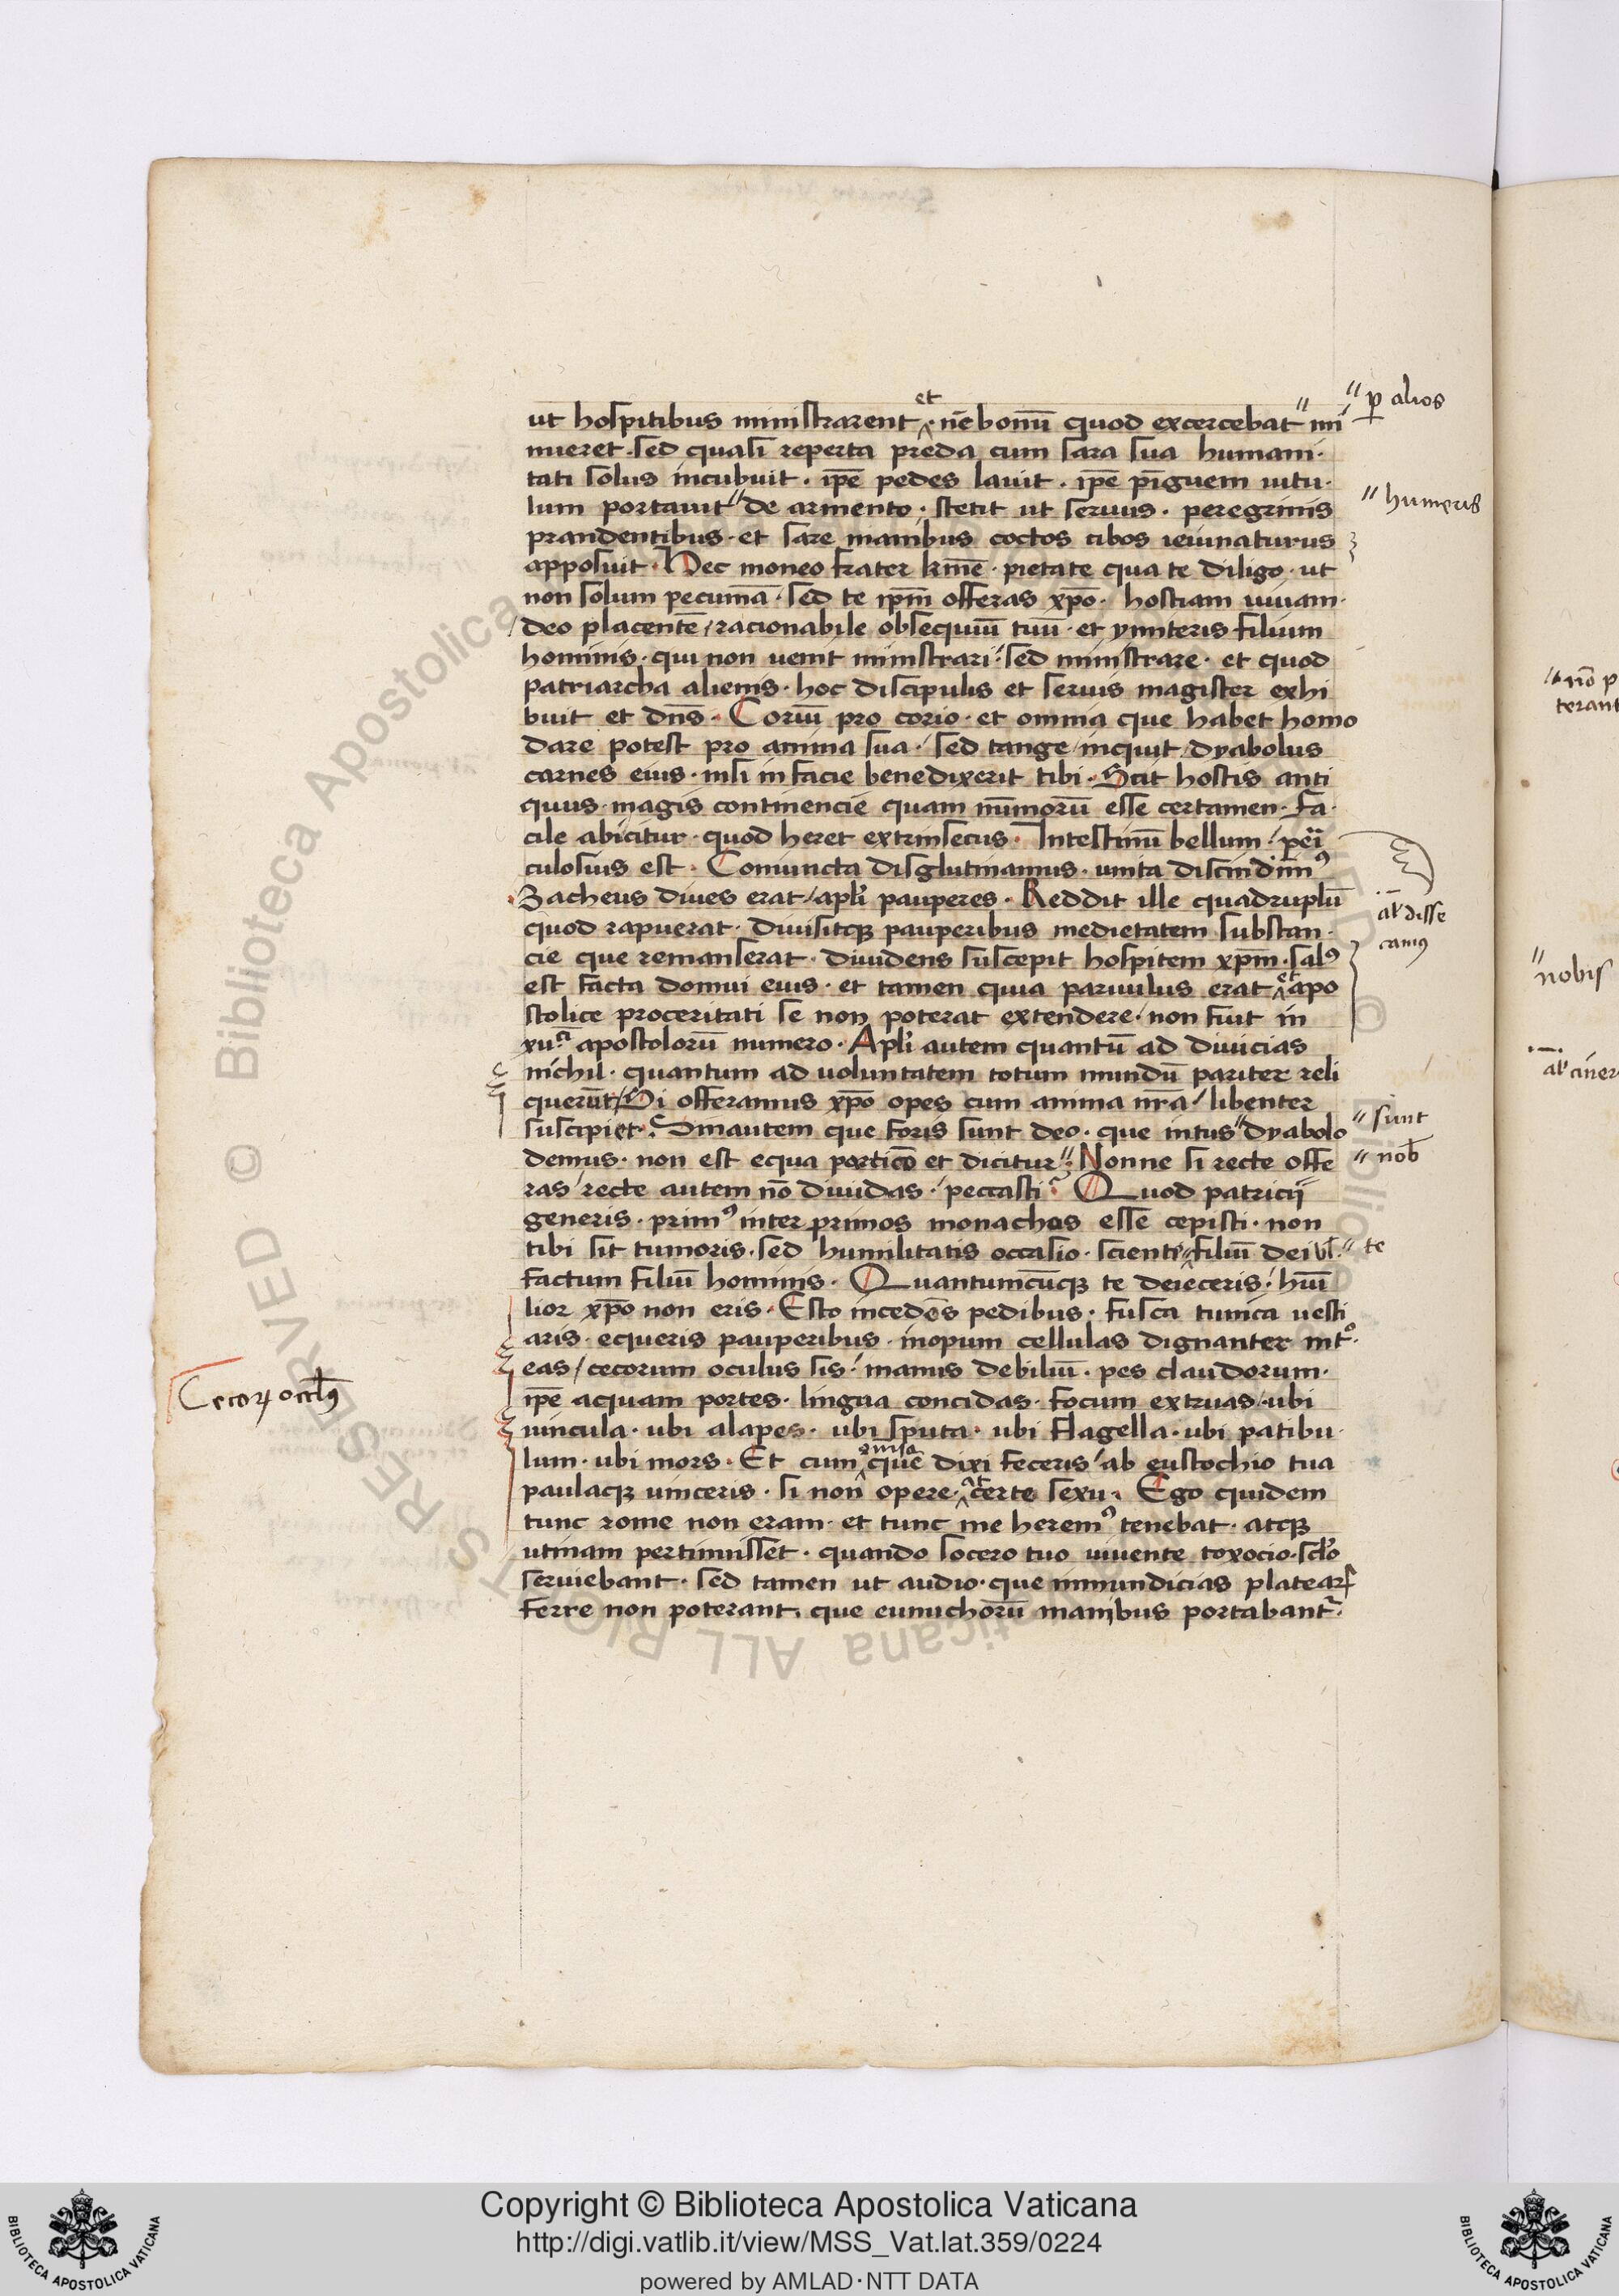 et
ut hospitibus ministrarent · nē bonū quod excercebat '' mi
nueret · sed quasi reperta preda cum sara sua humani ·
tati solus incubuit · ip̄e pedes lavit · ip̄e pīguem uitu ·
lum portauit '' de armento · stetit ut seruus · peregrinis
prandentibus · et sare manibus coctos cibos ieiunaturus
apposuit · Hec moneo frater kr̄me · pietate qua te diligo · ut
non solum pecuniā · sed te ip̄m offeras xp̄o · hostiam uiuam ·
deo placentē / racionabile obsequiū tuū · et ymiteris filium
hominis · qui non uenit ministrari / sed ministrare · et quod
patriarcha alienis · hoc discipulis et seruis magister exhi
buit et dn̄s · Coriū pro corio · et omnia que habet homo
dare potest pro anima sua / sed tange / inquit / dyabolus
carnes eius · nisi in facie benedixerit tibi · Scit hostis anti
quus · magis continencie quam nūmorū esse certamen · fa ·
cile abicitur · quod heret extrinsecus · Intestinū bellum / peri
culosius est · Coniuncta disglutinamus · unita discindimꝰ
Zacheus diues erat / apl̄i pauperes · Reddit ille quadruplū
quod rapuerat · diuisitqꝫ pauperibus medietatem substan ·
cie que remanserat · diuidens suscepit hospitem xp̄m · salꝰ
est facta domui eius · et tamen quia paruulus erat et apo
stolice proceritati se non poterat extendere · non fuit in
xii apostolorū numero · Apl̄i autem quantū ad diuicias
nichil · quantum ad uoluntatem totum mundū pariter reli
querūt / Si offeramus xp̄o opes cum anima nr̄a / libenter
suscipiet · Sin autem que foris sunt deo · que intus '' dyabolo
demus · non est equa porticō et dicitur '' Nonne si recte offe
ras / recte autem nō diuidas / peccasti Quod patricij
generis · primꝰ inter primos monachos esse cepisti · non
tibi sit tumoris · sed humilitatis occasio · scienti filiū dei
factum filiū hominis · Quantumcunqꝫ te deieceris / hūi
lior xp̄o non eris · Esto incedēs pedibus · fusca tunica uesti
aris · equeris pauperibus · inopum cellulas dignanter intº ·
eas / cecorum oculus sis / manus debiliū · pes claudorum ·
ip̄e aquam portes · lingua concidas · focum extruas / ubi
uincula · ubi alapes · ubi sputa · ubi flagella · ubi patibu ·
omnia
lum · ubi mors · Et cum que dixi feceris / ab eustochio tua
paulaqꝫ uinceris · si non opere · at certe sexu · Ego quidem
tunc rome non eram · et tunc me heremꝰ tenebat · atqꝫ
utinam pertimuisset · quando socero tuo uiuente toxocio · scl̄o
seruiebant · sed tamen ut audio · que inmundicias platearꝝ
ferre non poterant · que eunuchorū manibus portabantr̄ ·
'' ꝑ alios
'' humeris
al̄ disse
camꝰ
'' sunt
'' nob̄
'' te
Cecoꝝ oculꝰ
'' nō p
terant
'' nobis
al̄ ciner
© Biblioteca Apostolica Vaticana ALL RIGHTS RESERVED
Copyright © Biblioteca Apostolica Vaticana
http://digi.vatlib.it/view/MSS_Vat.lat.359/0224
powered by AMLAD·NTT DATA
BIBLIOTECA APOSTOLICA VATICANA
BIBLIOTECA APOSTOLICA VATICANA